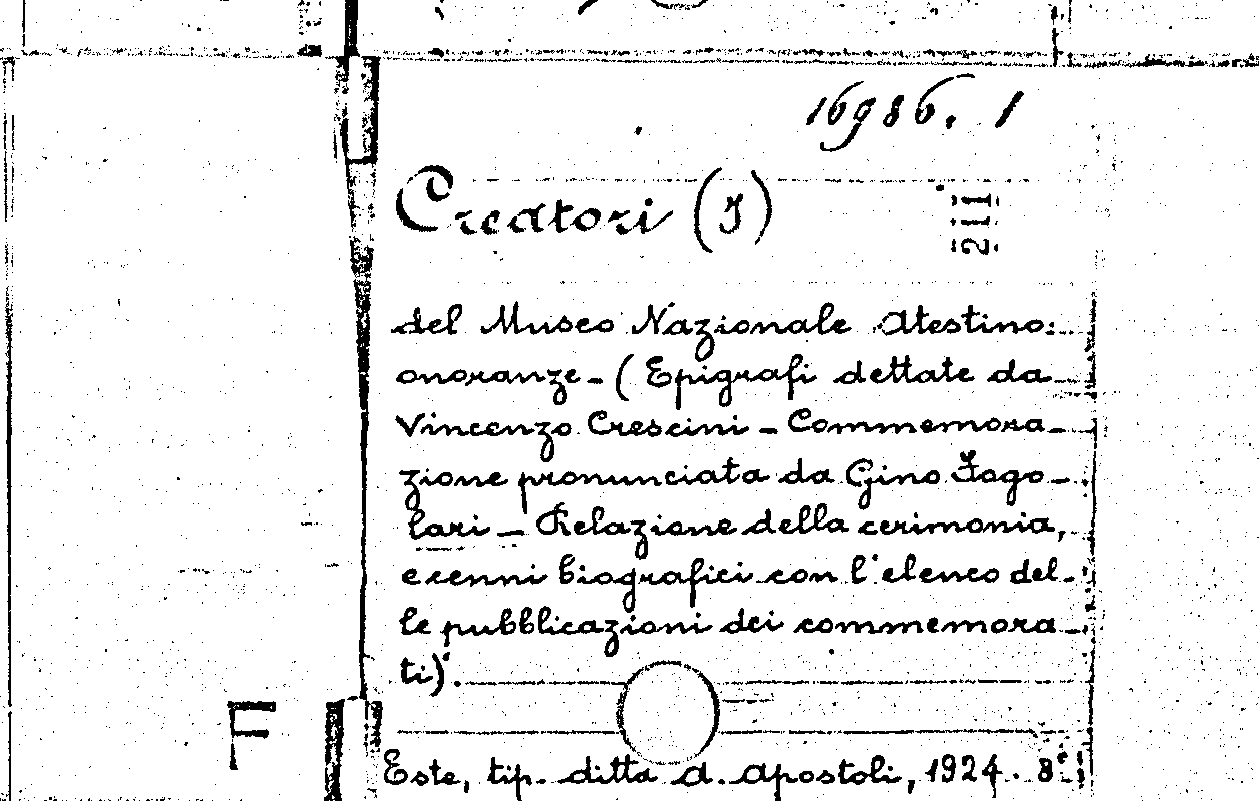 16986. 1
Creatori (I)
211
del Museo Nazionale Atestino:
onoranze - ( Epigrafi dettate da
Vincenzo Crescini - Commemora-
zione pronunciata da Gino Fogo-
lari - Relazione della cerimonia,
e cenni biografici con l'elenco del-
le pubblicazioni dei commemora-
ti).
F
Este, tip. ditta A. Apostoli, 1924. 8°